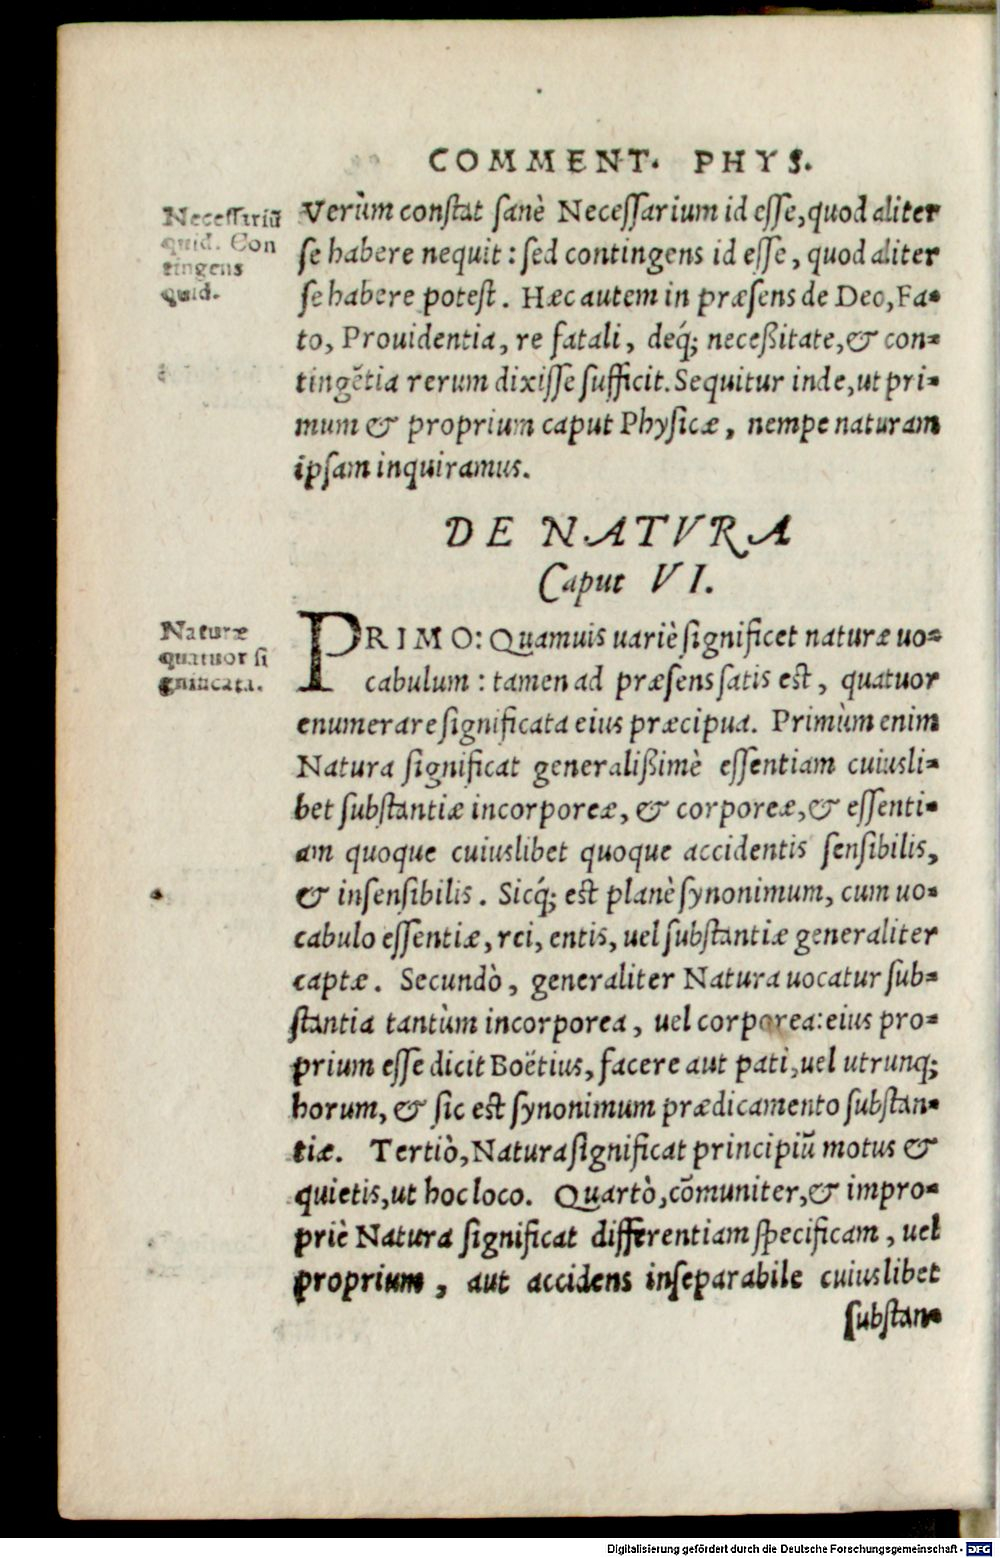 COMMENT. PHYS.
Necessariũ
quid. Con
tingens
quid.
Verùm constat sanè Necessarium id esse, quod aliter
se habere nequit: sed contingens id esse, quod aliter
se habere potest. Hæc autem in præsens de Deo, Fa-
to, Prouidentia, re fatali, deq́; neceßitate, & con-
tingẽtia rerum dixisse sufficit. Sequitur inde, ut pri-
mum & proprium caput Physicæ, nempe naturam
ipsam inquiramus.
DE NATVRA
Caput VI.
Naturæ
quatuor si
gnificata.
PRIMO: Quamuis uariè significet naturæ uo-
cabulum: tamen ad præsens satis est, quatuor
enumerare significata eius præcipua. Primùm enim
Natura significat generalißimè essentiam cuiusli-
bet substantiæ incorporeæ, & corporeæ, & essenti-
am quoque cuiuslibet quoque accidentis sensibilis,
& insensibilis. Sicq́; est planè synonimum, cum uo-
cabulo essentiæ, rei, entis, uel substantiæ generaliter
captæ. Secundò, generaliter Natura uocatur sub-
stantia tantùm incorporea, uel corporea: eius pro-
prium esse dicit Boëtius, facere aut pati, uel utrunq;
horum, & sic est synonimum prædicamento substan-
tiæ. Tertiò, Natura significat principiũ motus &
quietis, ut hoc loco. Quartò, cõmuniter, & impro-
priè Natura significat differentiam specificam, uel
proprium, aut accidens inseparabile cuiuslibet
substan-
Digitalisierung gefördert durch die Deutsche Forschungsgemeinschaft - DFG